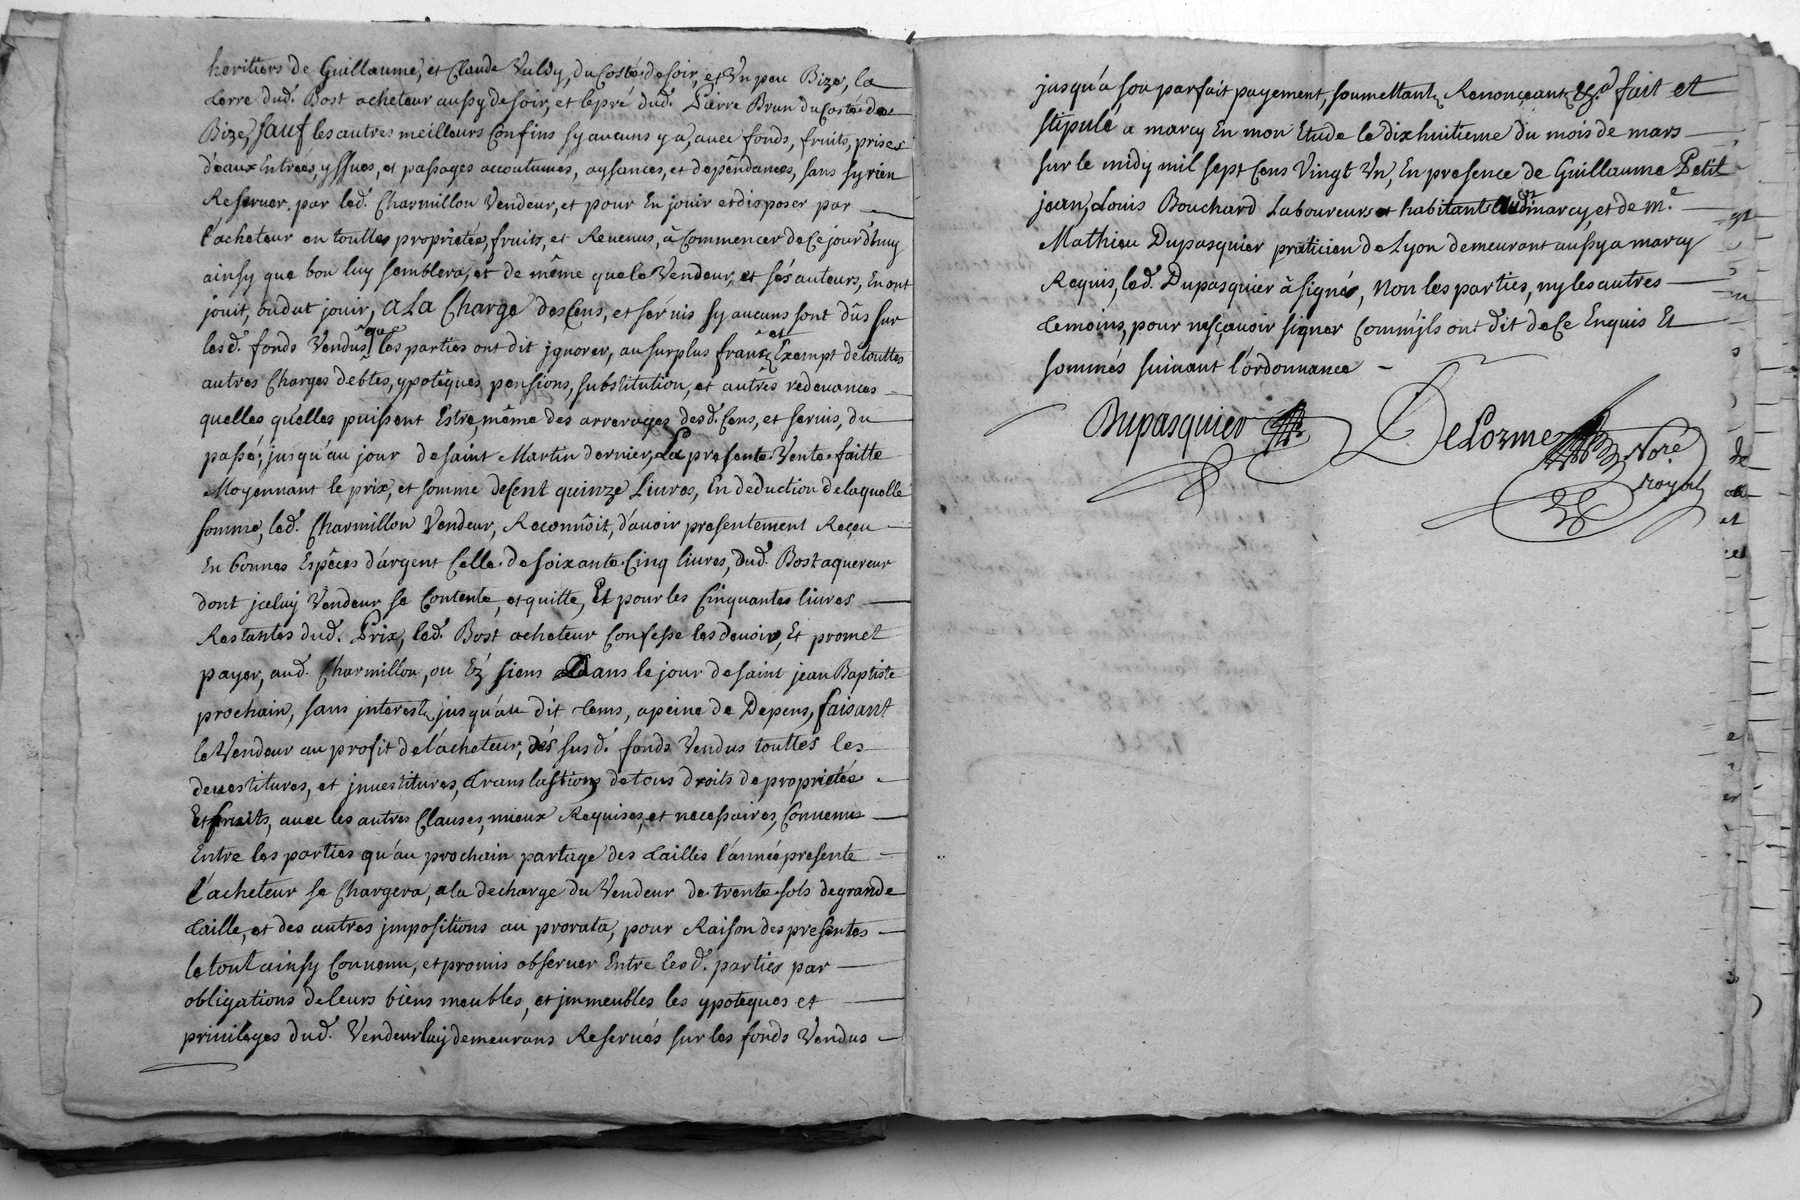 heritiers de Guillaume, et Claude Vuldy, du Costé de soir, et Un peu Bize, la
terre dud. Bost acheteur aussy de soir, et le pré dud. Pierre Brun du Costé de
Bize, sauf les autres meilleurs Confins sy aucuns y a, avec fonds, fruits, prises
d'eaux Entrées, yssues, et passages accoutumés, aysances, et dependances, sans sy rien
Reserver par led. Charmillon Vendeur, et pour En jouir et disposer par
l'acheteur en touttes proprietés, fruits, et Revenus, à Commencer de Ce jourdhuy
ainsy que bon luy semblera, et de même que le Vendeur, et ses auteurs, En ont
jouit, ou dut jouir, a La Charge des Cens, et servis sy aucuns sont dûs sur
lesd. fonds Vendus, que les parties ont dit jgnorer, au surplus francz et Exempt de touttes
autres Charges debtes, ypoteques, pensions, substitution, et autres redevances
quelles qu'elles puissent Estre, même des arrerages desd. Cens, et servis, du
passé, jusqu'au jour de saint Martin dernier, La presente Vente faitte
Moyennant le prix, et somme de Cent quinze Livres, En deduction de laquelle
somme, led. Charmillon Vendeur, Reconnoit, d'avoir presentement Reçeu
En bonnes Espèces d'argent Celle de soixante Cinq livres, dud. Bost aquereur
dont jceluy Vendeur se Contente, et quitte, Et pour les Cinquantes livres
Restantes dud. Prix, led. Bost acheteur Confesse les devoir, Et promet
payer, aud. Charmillon, ou Ez siens Dans le jour de saint jean Baptiste
prochain, sans jnterestz jusqu'au dit tems, a peine de Depens, faisant
le Vendeur au profit de l'acheteur, des susd. fonds Vendus touttes les
devestitures, et jnvestitures, translastions de tous droits de proprietés
Et fruits, avec les autres Clauses, mieux Requises, et necessaires, Convenu
Entre les parties qu'au prochain partage des tailles l'année presente
l'acheteur se Chargera, a la decharge du Vendeur de trente sols de grande
taille, et des autres jmpositions au prorata, pour Raison des presentes
le tout ainsy Convenu, et promis observer Entre lesd. parties par
obligations de leurs biens meubles, et jmmeubles les ypoteques et
privileges dud. Vendeur luy demeurans Reservés sur les fonds Vendus
jusqu'a son parfait payement, soumettantz Renonçeantz &a. fait et
stipulé a marcy En mon Etude le dix huitieme du mois de mars
sur le midy mil sept Cens Vingt Un, En presence de Guillaume Petit
jean, Louis Bouchard Laboureurs et habitants dud. marcy et de me
Mathieu Dupasquier praticien de Lyon demeurant aussy a marcy
Requis, led. Dupasquier à signés, Non les parties, ny les autres
temoins, pour ne sçavoir signer Comm'jls ont dit de Ce Enquis Et
sommés suivant l'ordonnance
Dupasquier DeLorme Nore
Royal